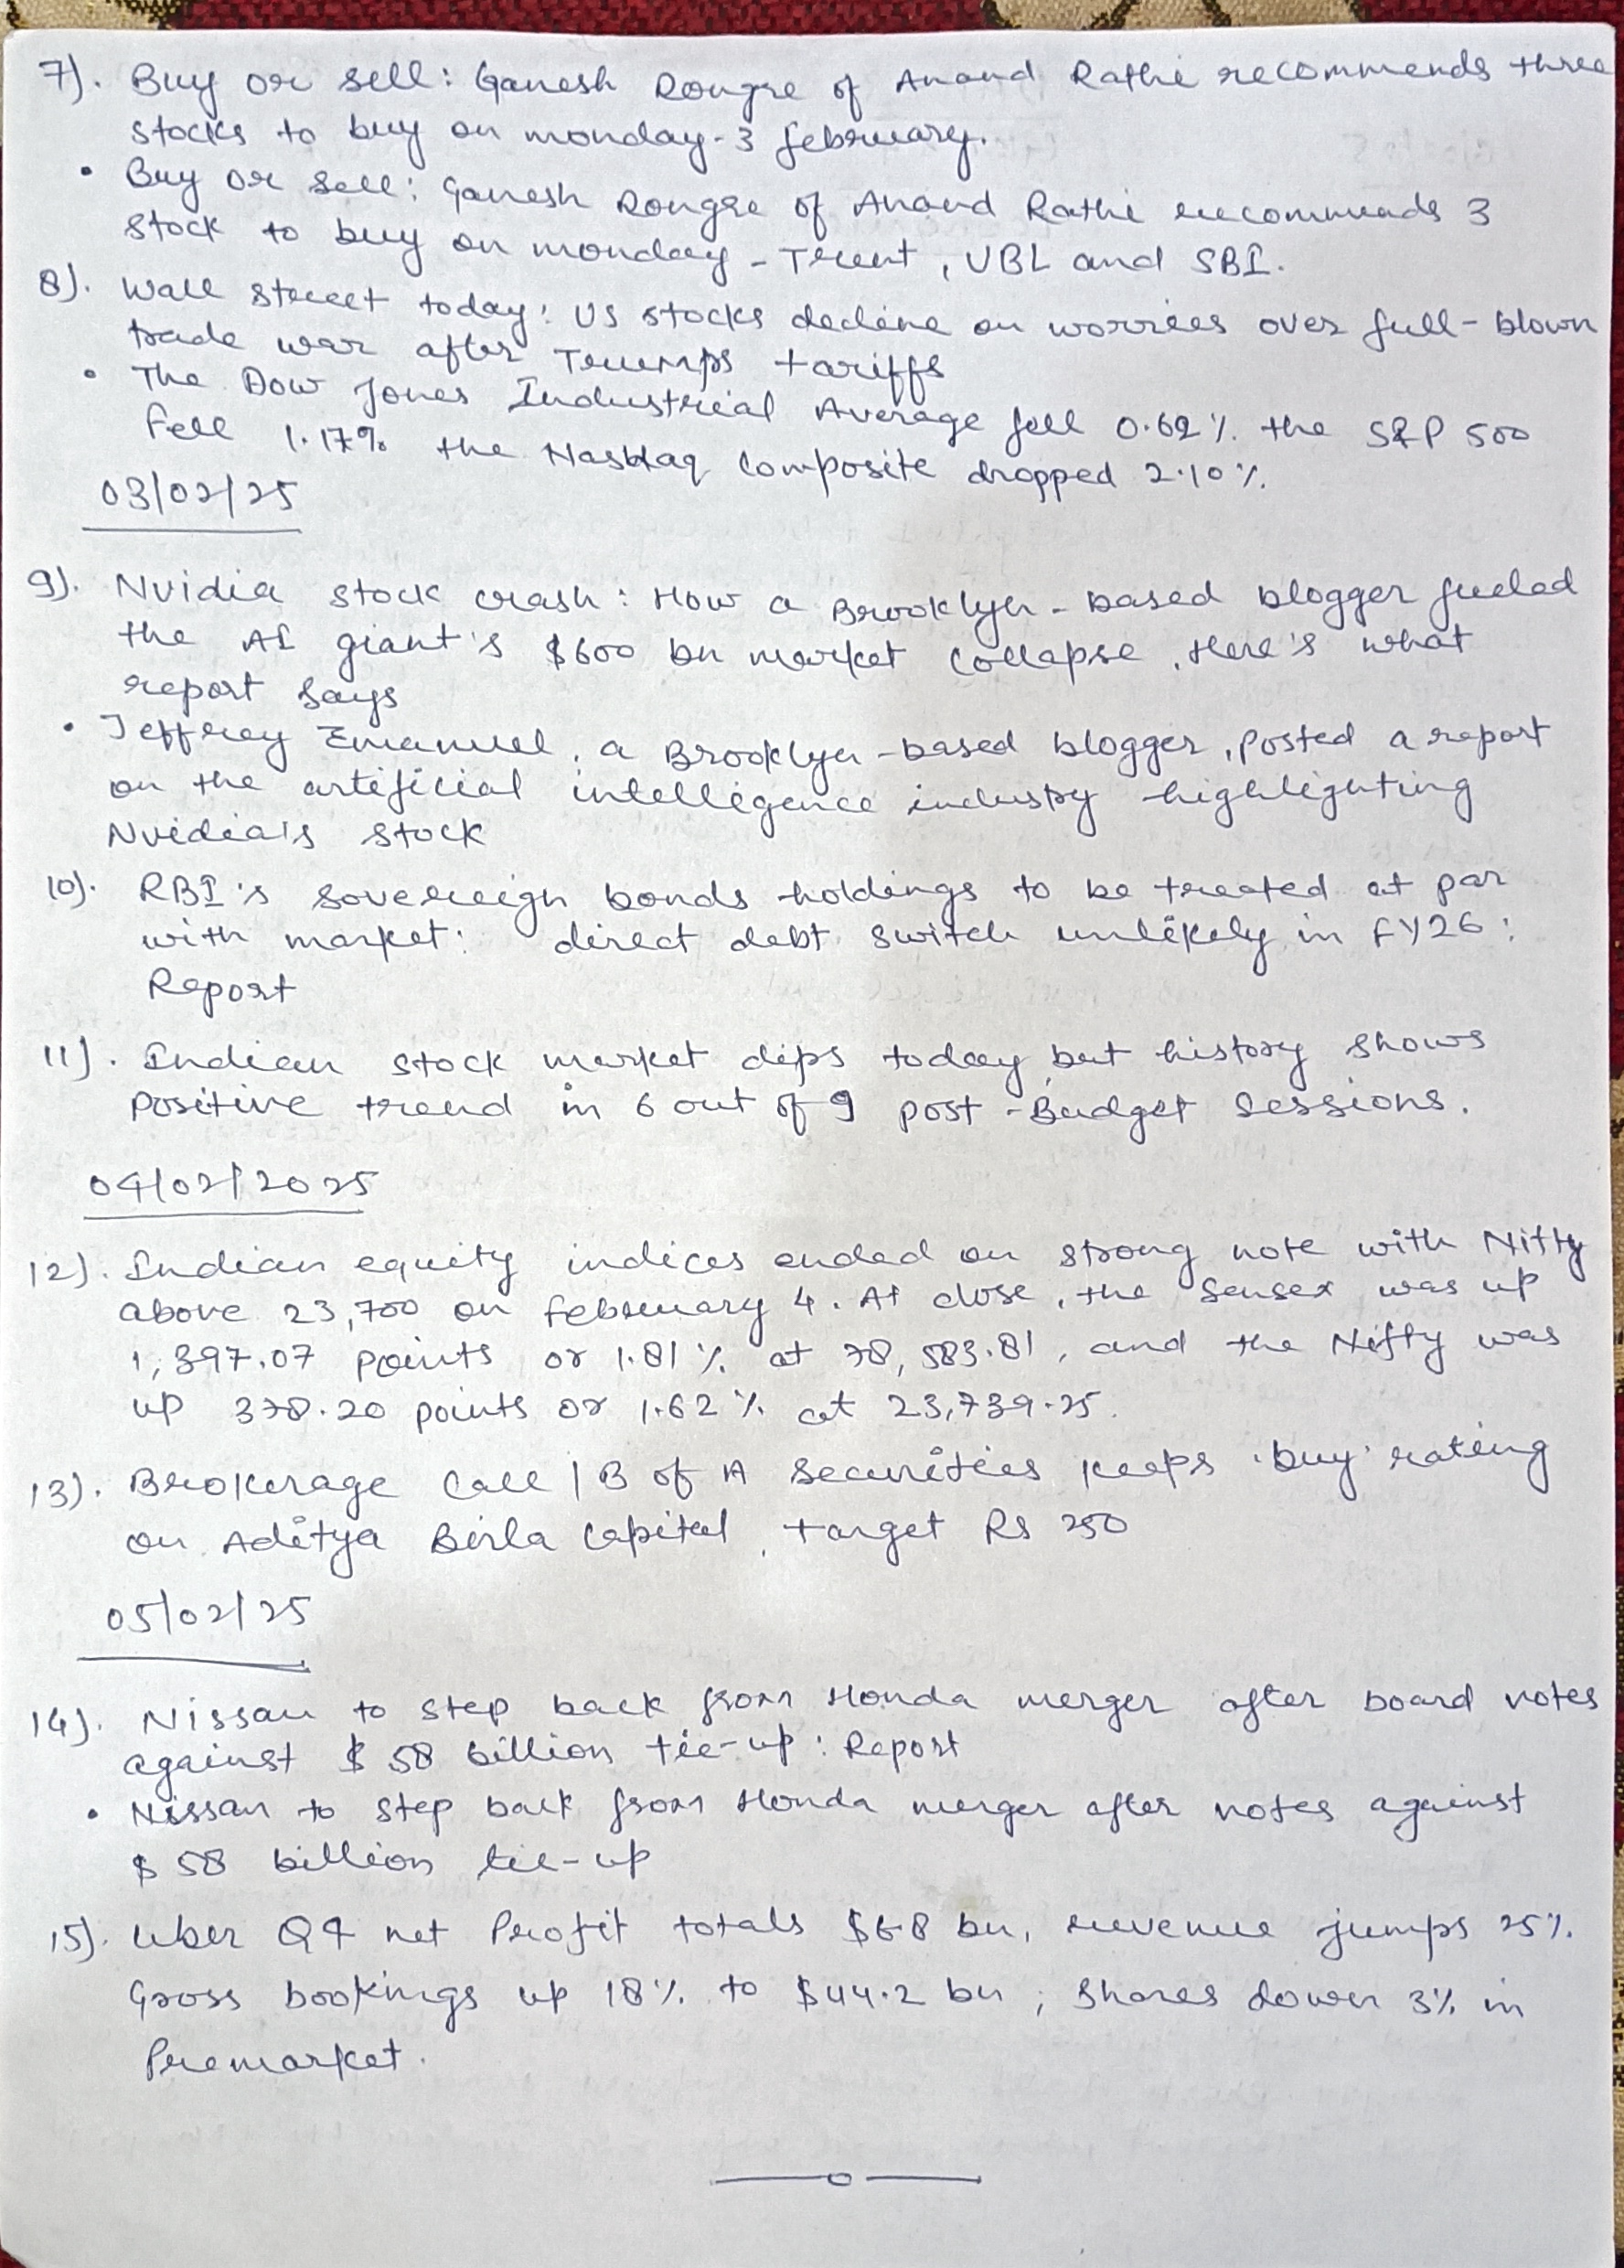 7). Buy or sell: Ganesh Dongre of Anand Rathi recommends three
stocks to buy on monday-3 february.
• Buy or sell: Ganesh Dongre of Anand Rathi recommends 3
stock to buy on monday - Trent, UBL and SBI.
8). Wall street today: US stocks decline on worries over full-blown
trade war after Trumps tariffs
• The Dow Jones Industrial Average fell 0.62%. the S&P 500
fell 1.17% the Nasdaq Composite dropped 2.10%.
03/02/25
9). Nvidia stock crash: How a Brooklyn-based blogger fueled
the AI giant's $600 bn market collapse, Here's what
report says
• Jeffrey Emanuel, a Brooklyn-based blogger, posted a report
on the artificial intelligence industry highlighting
Nvidia's stock
10). RBI's sovereign bonds holdings to be treated at par
with market: direct debt switch unlikely in FY26:
Report
11). Indian stock market dips today but history shows
positive trend in 6 out of 9 post-Budget sessions.
04/02/2025
12). Indian equity indices ended on strong note with Nifty
above 23,700 on february 4. At close, the Sensex was up
1,397.07 points or 1.81% at 78,583.81, and the Nifty was
up 378.20 points or 1.62% at 23,739.25.
13). Brokerage Call | B of A Securities keeps 'buy' rating
on Aditya Birla Capital, target Rs 250
05/02/25
14). Nissan to step back from Honda merger after board votes
against $58 billion tie-up: Report
• Nissan to step back from Honda merger after votes against
$58 billion tie-up
15). Uber Q4 net Profit totals $6.8 bn, revenue jumps 25%.
Gross bookings up 18% to $44.2 bn; Shares down 3% in
Premarket.